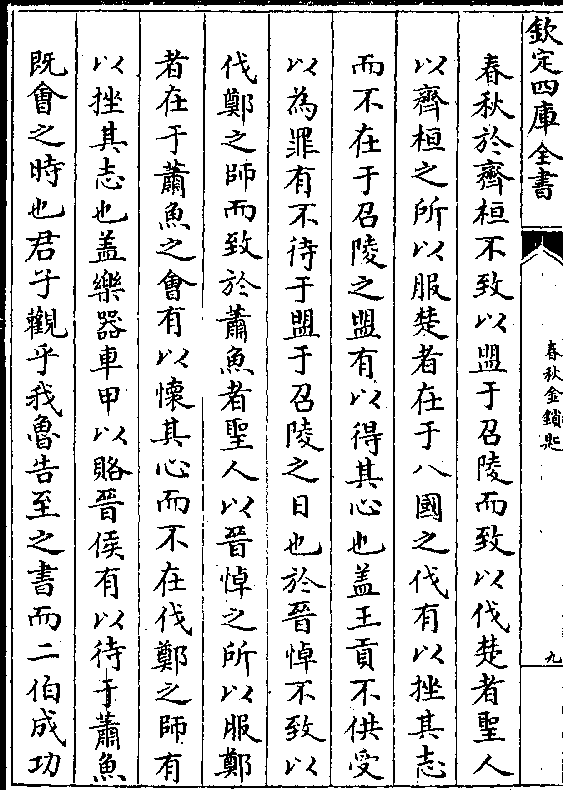 欽定四庫全書
春秋金鎖匙
九
春秋於齊桓不致以盟于召陵而致以伐楚者聖人
以齊桓之所以服楚者在于八國之伐有以挫其志
而不在于召陵之盟有以得其心也蓋王貢不供受
以為罪有不待于盟于召陵之日也於晉悼不致以
伐鄭之師而致於蕭魚者聖人以晉悼之所以服鄭
者在于蕭魚之會有以懷其心而不在伐鄭之師有
以挫其志也盖樂器車甲以賂晉侯有以待于蕭魚
既會之時也君子觀乎我魯告至之書而二伯成功